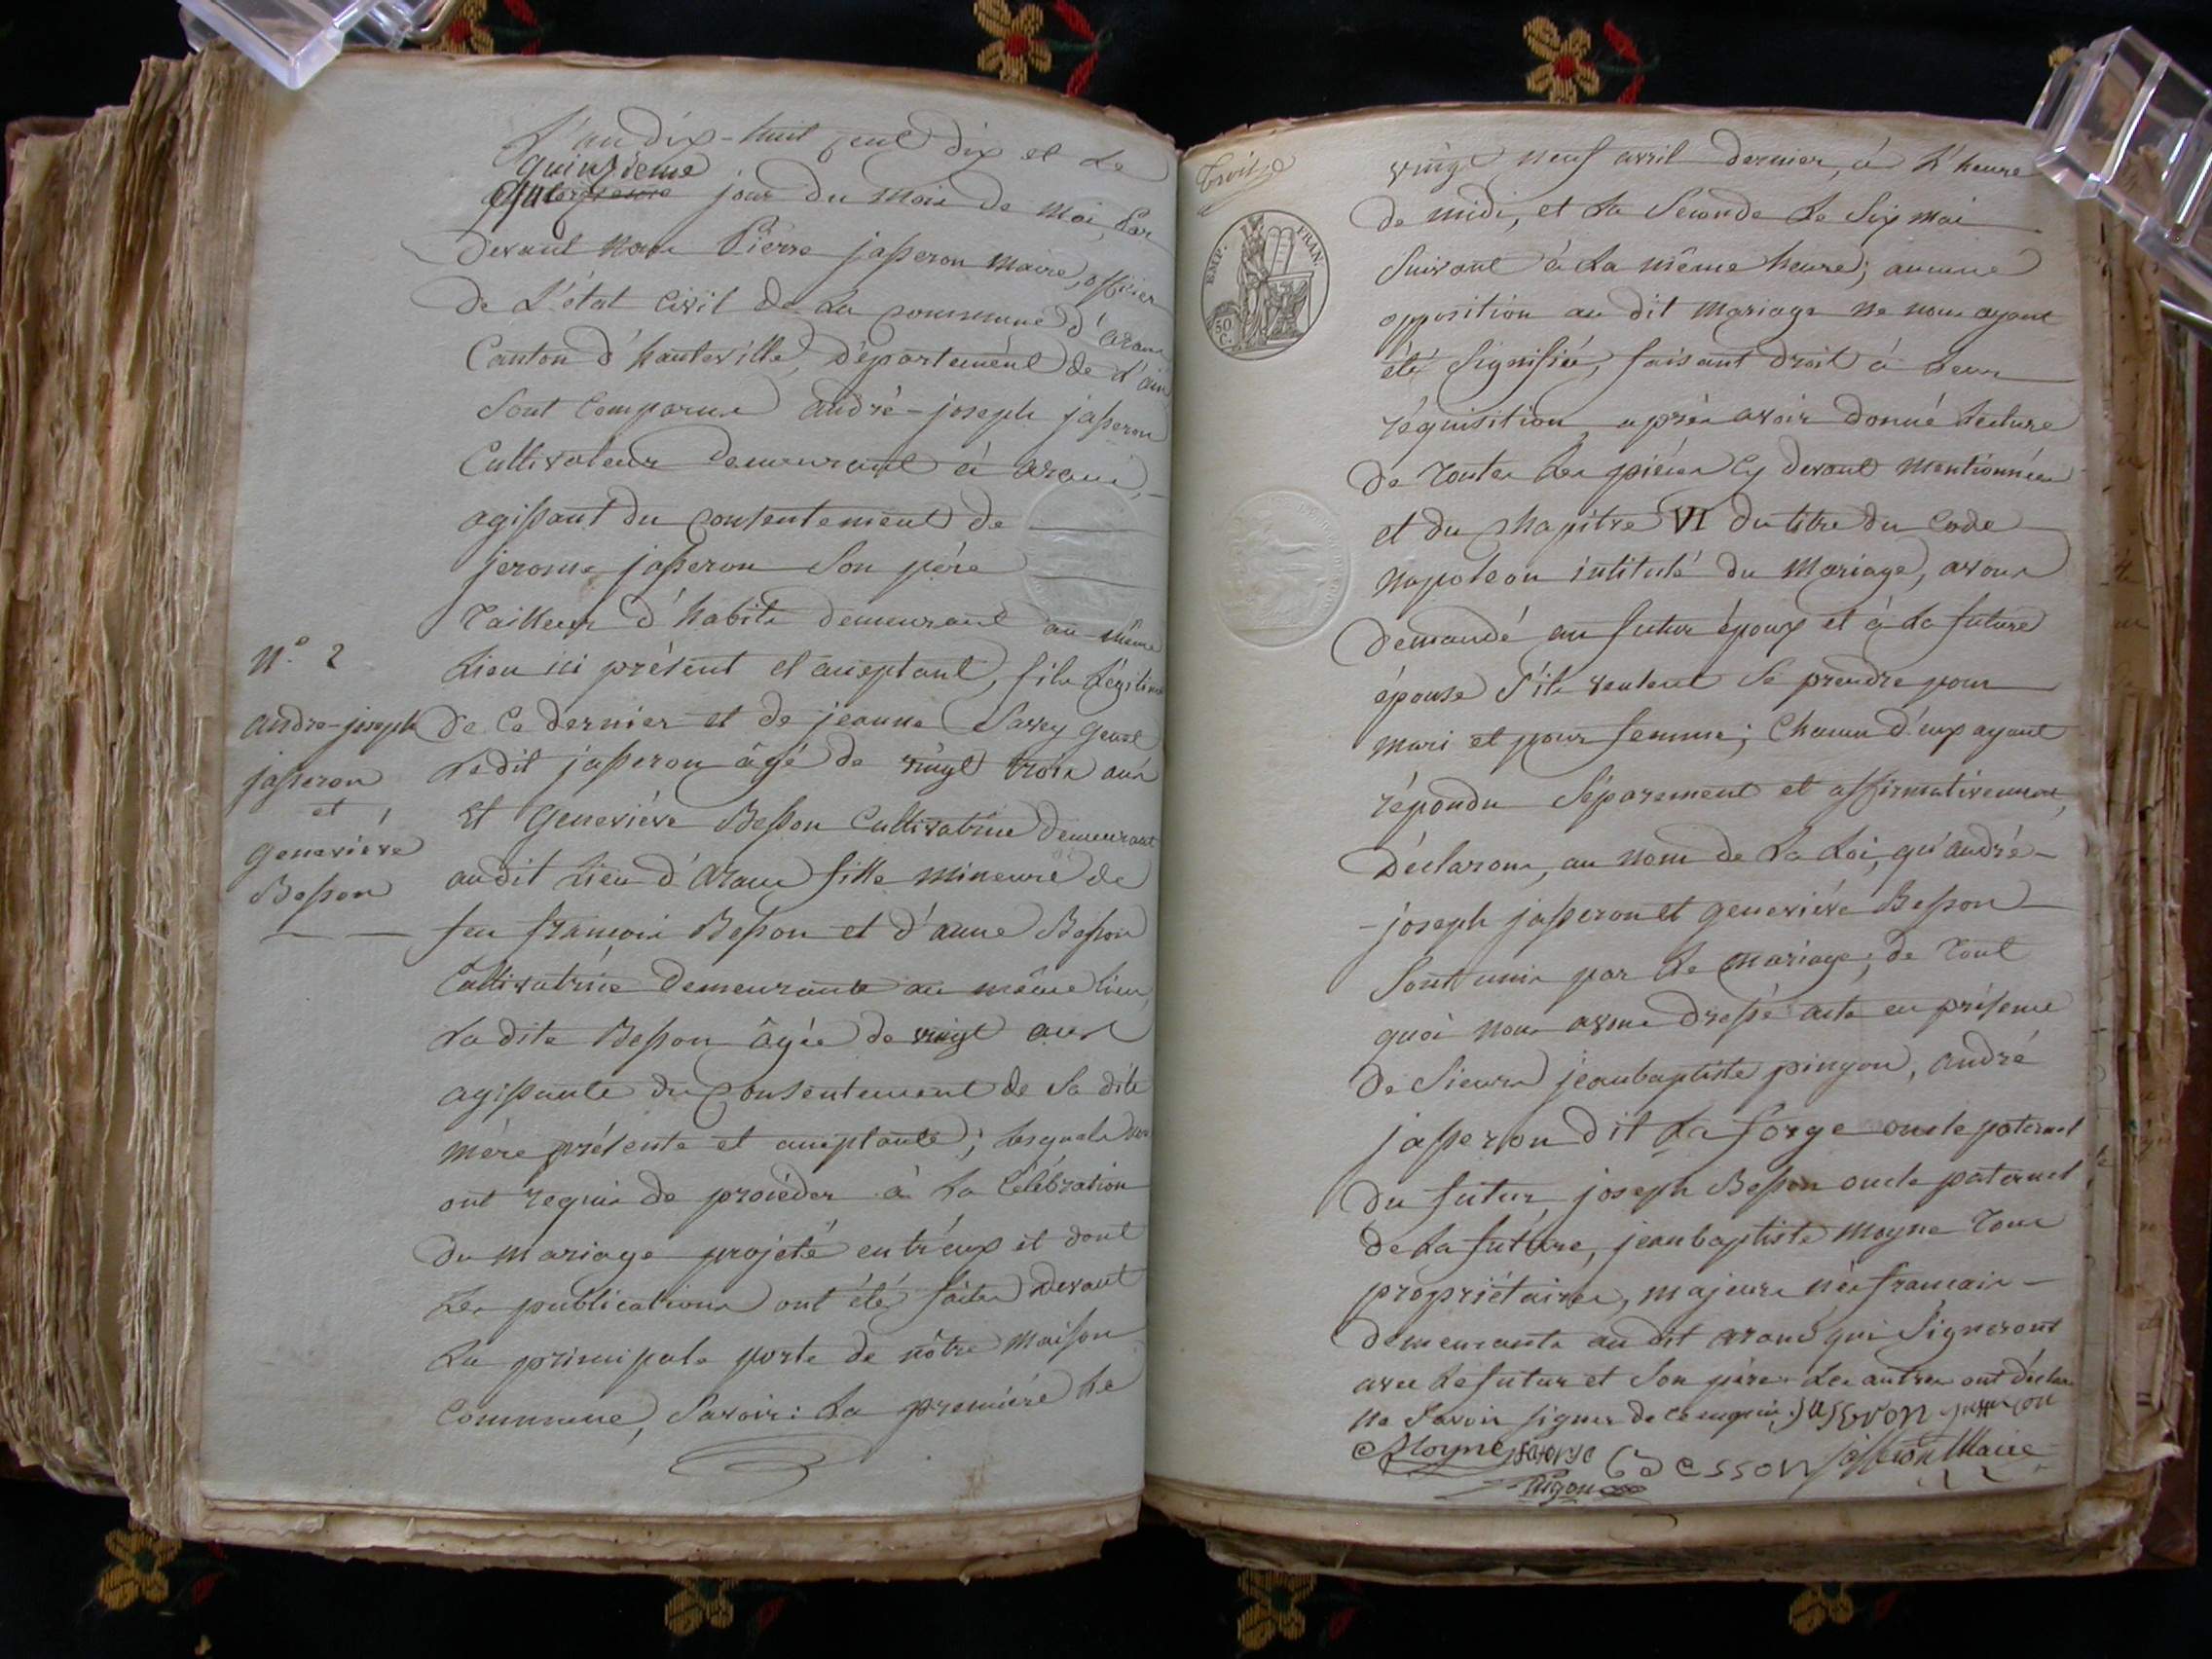 L'an dix-huit cent dix et le
quinzième
jour du mois de mai, Par
devant nous Pierre jasseron maire, officier
de L'état Civil de La commune d'aranc
Canton d'hauteville, Département de L'ain
Sont Comparus andré-joseph jasseron
Cultivateur demeurant à aranc,
agissant du consentement de
jerome jasseron Son père
Tailleur d'habits demeurant au même
Lieu ici présent et acceptant, fils Légitime
de Ce dernier et de jeanne Savey
Ledit jasseron âgé de vingt trois ans
Et Geneviève Besson Cultivatrice demeurant
audit Lieu d'aranc fille mineure de
feu françois Besson et d'anne Besson
Cultivatrice demeurante au même lieu,
La dite Besson âgée de vingt ans
agissante du consentement de Sa dite
mère présente et acceptante; Lesquels nous
ont requis de procéder à La Célébration
du mariage projeté entr'eux et dont
Les publications ont été faites devant
La principale porte de nôtre maison
Commune, Savoir: La première Le
N.° 2
andré-joseph
jasseron
et
geneviève
Besson
EMP. FRAN.
50 C.
vingt neuf avril dernier, à L'heure
de midi, et La Seconde Le Six mai
Suivant à La même heure; aucune
opposition au dit mariage ne nous ayant
été Signifiée, faisant droit à Leur
réquisition, après avoir donné Lecture
de Toutes Les pièces Cy devant mentionnées
et du chapitre VI du titre du Code
napoleon intitulé du Mariage, avons
demandé au futur époux et à La future
épouse S'ils veulent Se prendre pour
mari et pour femme; Chacun d'eux ayant
répondu Séparement et affirmativement,
Déclarons, au nom de La Loi, qu'andré-
-joseph jasseron et geneviève Besson
Sont unis par Le mariage; de Tout
quoi nous avons dressé acte en présence
de Sieurs jeanbaptiste pingon, andré
jasseron dit La forge oncle paternel
du futur, joseph Besson oncle paternel
de La future, jeanbaptiste moyne Tous
propriétaires, majeurs nés français
demeurants audit aranc qui Signeront
avec Le futur et Son père Les autres ont déclaré
ne Savoir signer de ce enquis. jaseron jasseron
Moyne
Besson jasseron Maire
Pingon